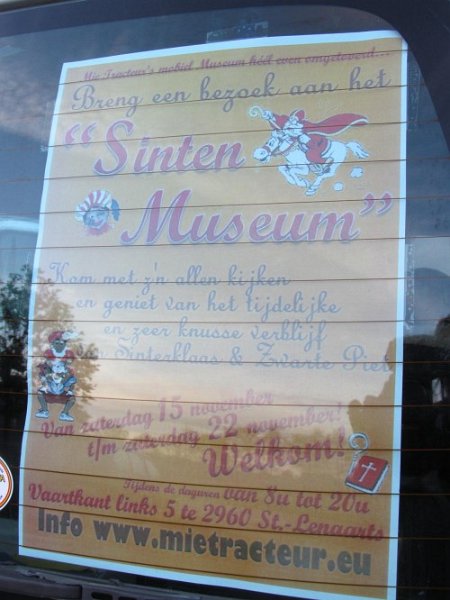 Mie Tracteur's mobiel Museum héél even omgetoverd...
Breng een bezoek aan het
“Sinten
Museum”
Kom met z'n allen kijken
en geniet van het tijdelijke
en zeer knusse verblijf
van Sinterklaas & Zwarte Piet
Van zaterdag 15 november
t/m zaterdag 22 november!
Welkom!
Tijdens de daguren van 8u tot 20u
Vaartkant links 5 te 2960 St.-Lenaarts
Info www.mietracteur.eu